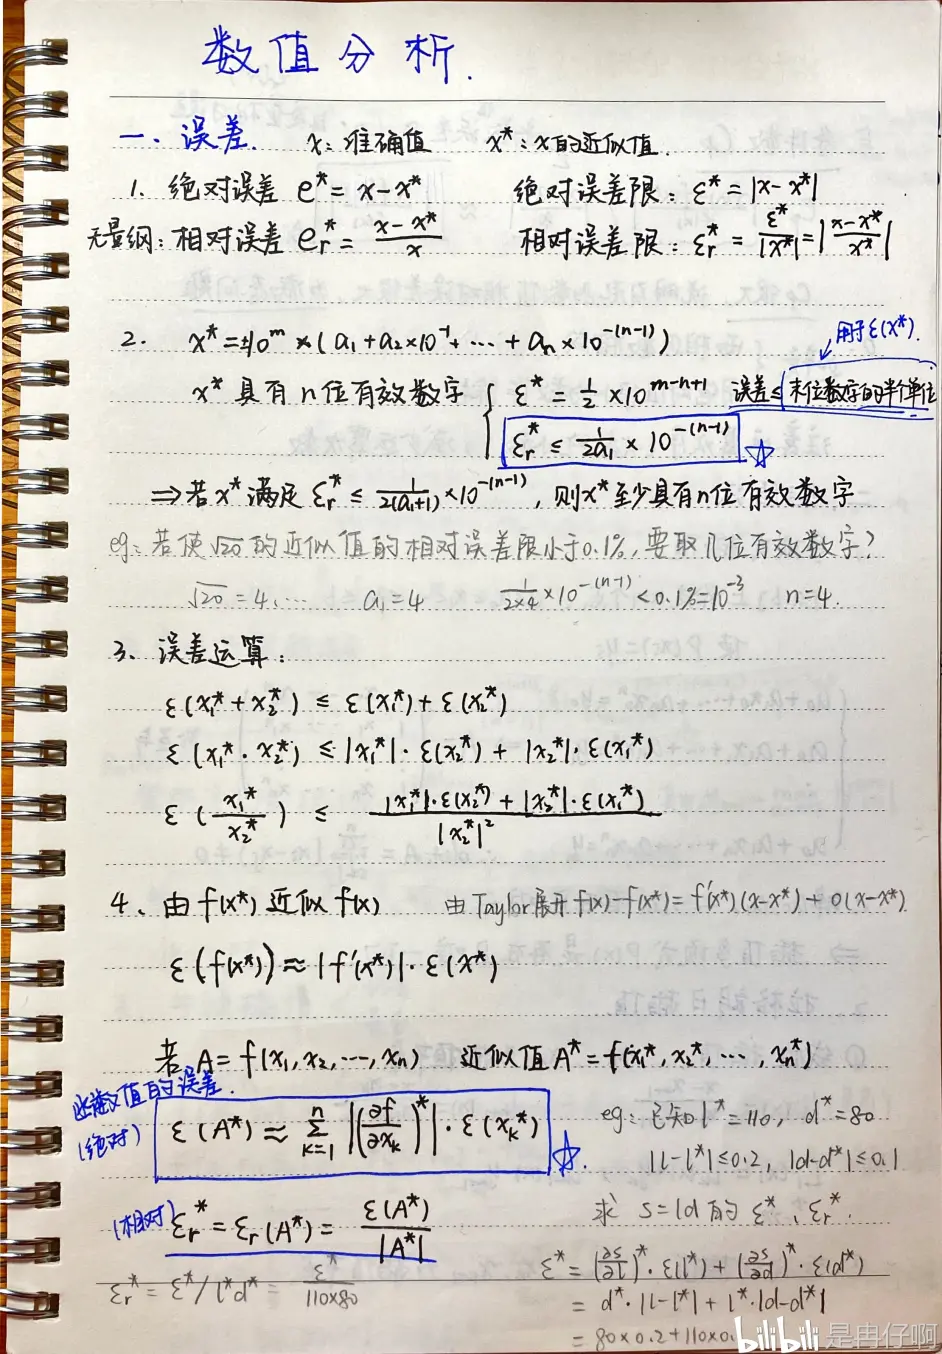 数值分析.
一、误差. x:准确值 x*:x的近似值.
1. 绝对误差 e* = x-x* 绝对误差限: ε* = |x-x*|
无量纲:相对误差 e_r* = (x-x*)/x 相对误差限: ε_r* = ε*/|x*| = |(x-x*)/x*|
用于ε(x*).
2. x* = ±10^m × (a₁+a₂×10^-1+…+aₙ×10^-(n-1))
x* 具有 n 位有效数字 { ε* = 1/2 ×10^(m-n+1) 误差≤末位数字的半个单位
ε_r* ≤ 1/(2a₁) × 10^-(n-1) ☆
⇒ 若 x* 满足 ε_r* ≤ 1/(2(a₁+1)) ×10^-(n-1), 则x*至少具有n位有效数字
eg: 若使√20的近似值的相对误差限小于0.1%, 要取几位有效数字?
√20 = 4.… a₁=4 1/(2×4) ×10^-(n-1) < 0.1%=10^-3 n=4.
3、误差运算:
ε(x₁*+x₂*) ≤ ε(x₁*)+ε(x₂*)
ε(x₁*·x₂*) ≤ |x₁*|·ε(x₂*)+|x₂*|·ε(x₁*)
ε(x₁*/x₂*) ≤ (|x₁*|·ε(x₂*)+|x₂*|·ε(x₁*))/|x₂*|²
4、由f(x*)近似f(x) 由Taylor展开f(x)-f(x*)=f'(x*)(x-x*)+o(x-x*).
ε(f(x*)) ≈ |f'(x*)|·ε(x*)
若A=f(x₁,x₂,…,xₙ) 近似值A*=f(x₁*,x₂*,…,xₙ*)
函数值的误差.
(绝对) ε(A*) ≈ Σ_{k=1}^{n} |(∂f/∂x_k)*|·ε(x_k*) ☆.
eg: 已知l*=110, d*=80
|l-l*|≤0.2, |d-d*|≤0.1
(相对) ε_r* = ε_r(A*) = ε(A*)/|A*|
求 s=ld 的 ε*、ε_r*.
ε* = (∂s/∂l)*·ε(l*)+(∂s/∂d)*·ε(d*)
ε_r* = ε*/l*d* = ε*/(110×80)
= d*·|l-l*|+l*·|d-d*|
= 80×0.2+110×0.
bilibili 是冉仔啊